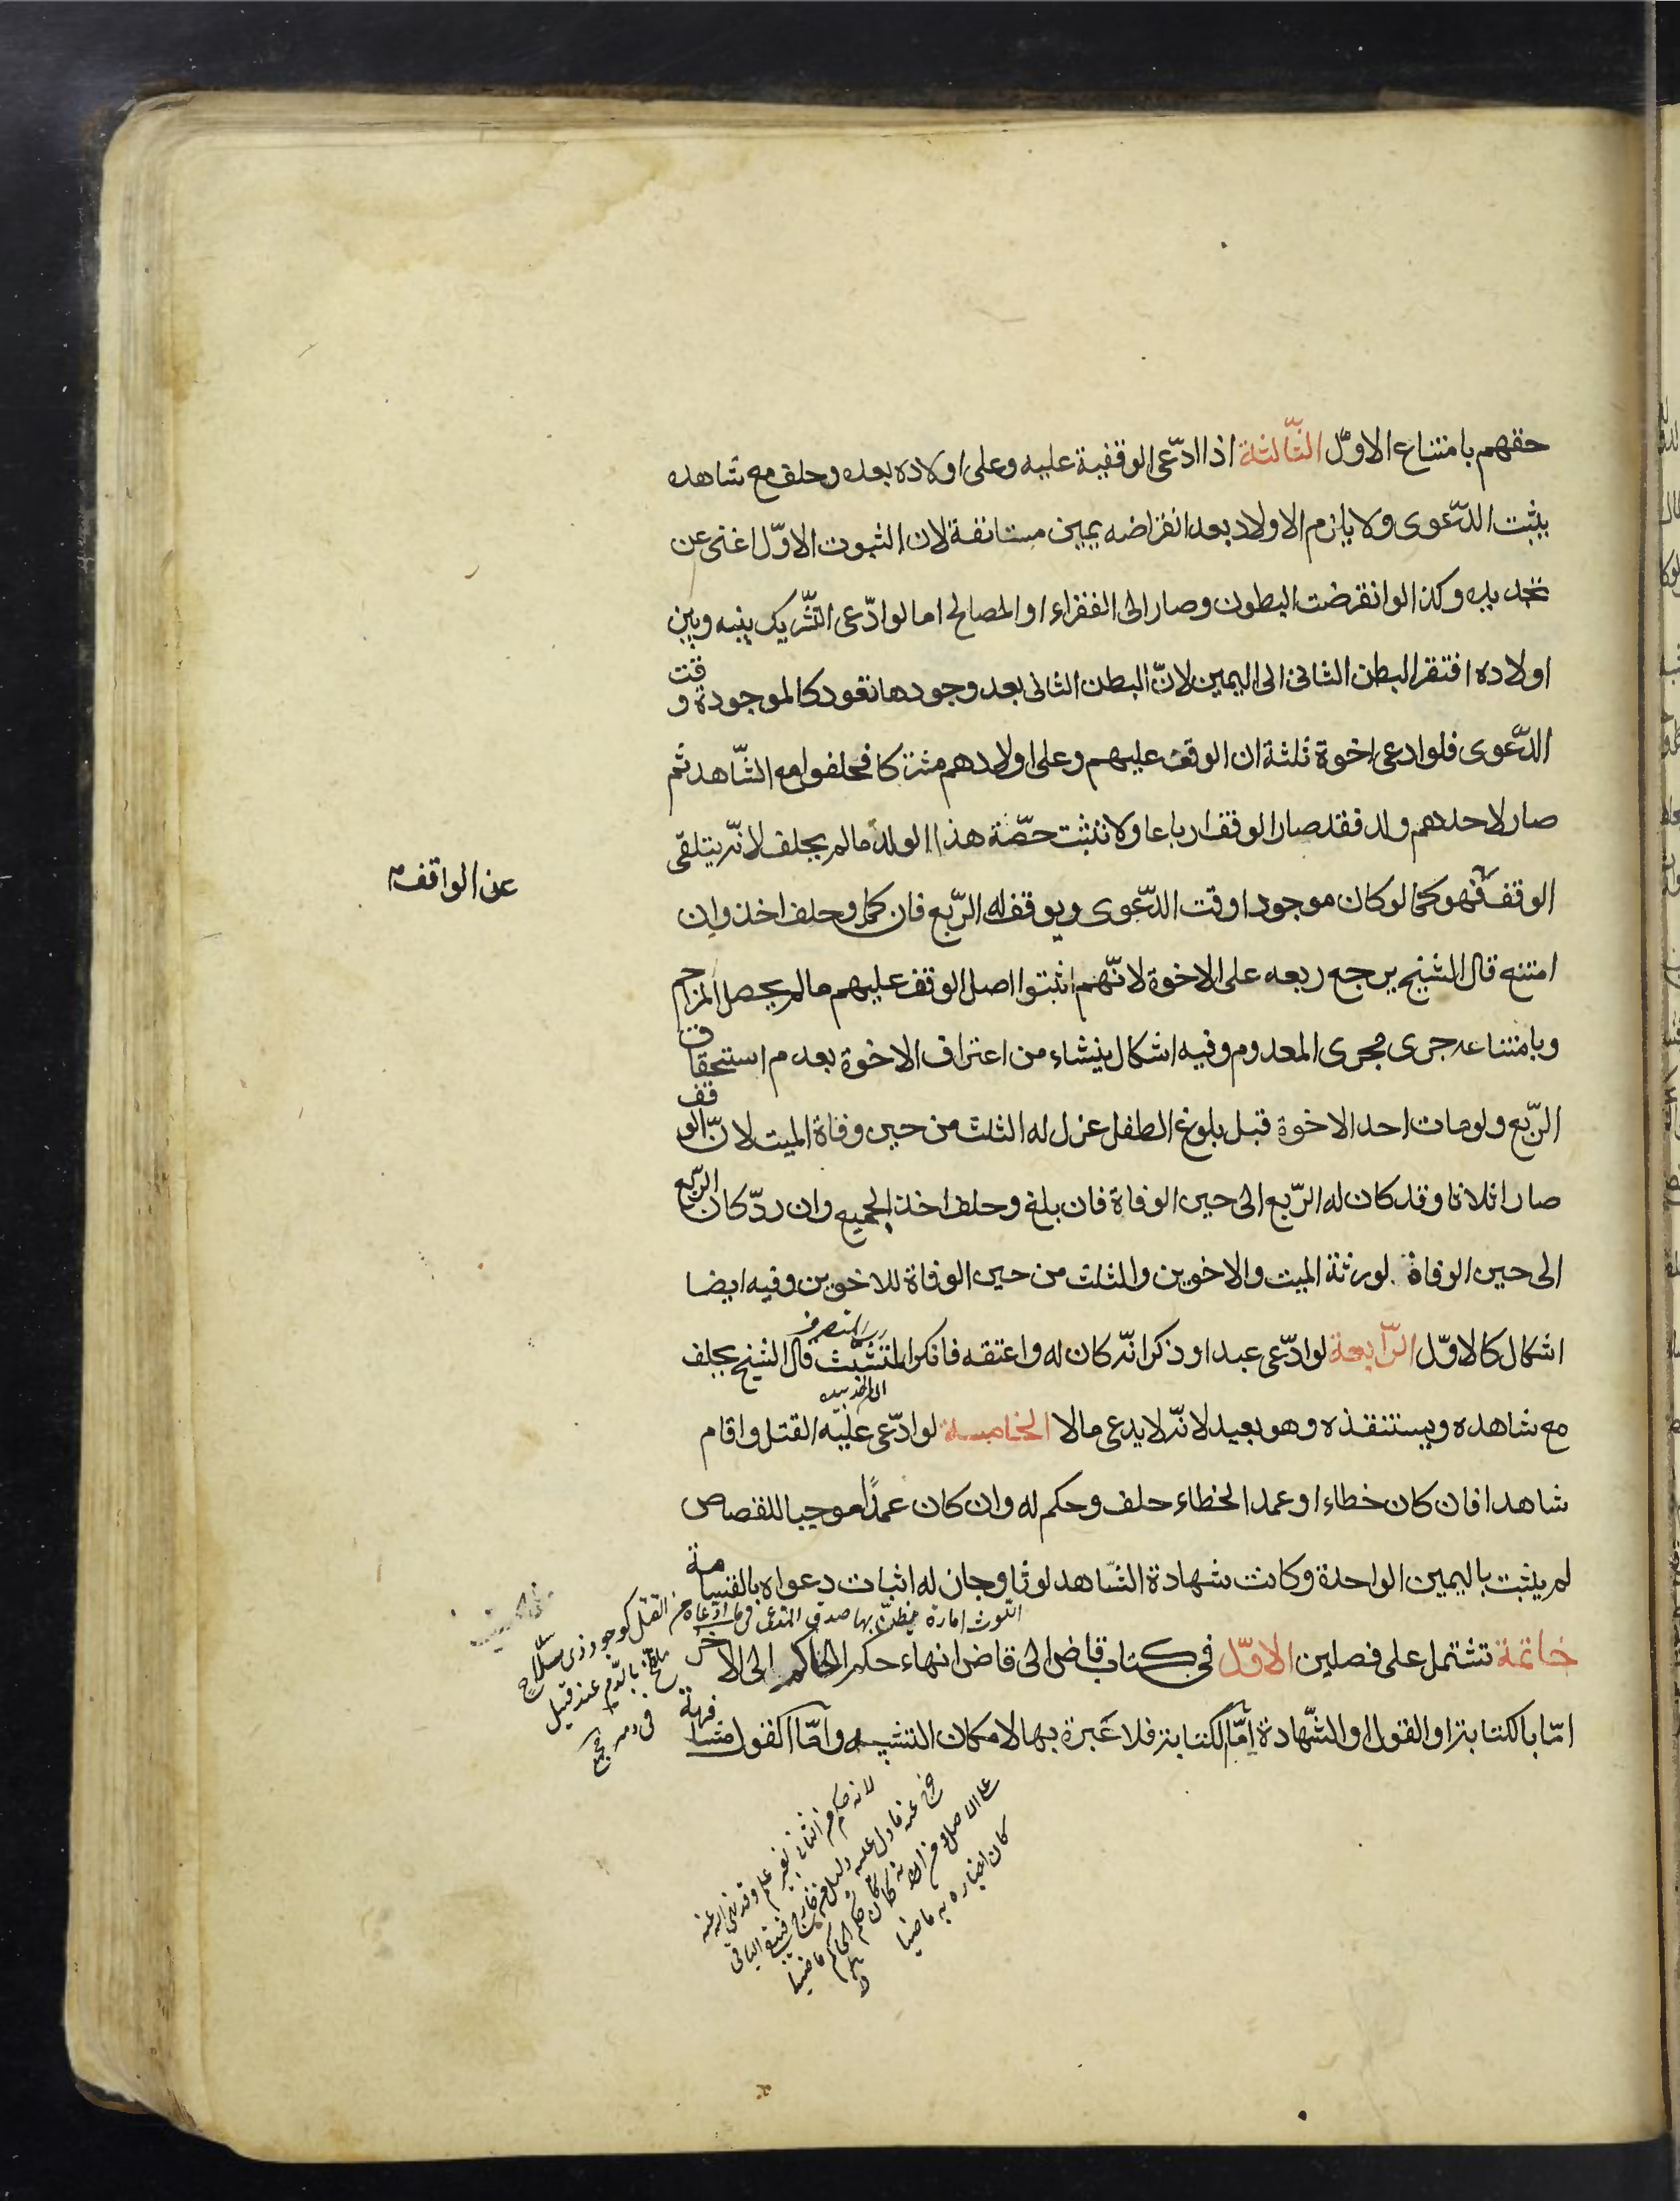 حقهم بامتناع الاوّل الثّالثة اذا ادّعى الوقفية عليه وعلى اولاده بعده وحلف مع شاهده
يثبت الدّعوى ولا يلزم الاولاد بعد انقراضه يمين مستانفة لان الثبوت الاوّل اغنى عن
تجديده وكذا لو انقرضت البطون وصار الى الفقراء او المصالح اما لو ادّعى التّشريك بينه وبين
اولاده افتقر البطن الثانى الى اليمين لانّ البطن الثانى بعد وجودها تعود كالموجودة وقت
الدّعوى فلو ادعى اخوة ثلثة ان الوقف عليهم وعلى اولادهم مشتركا فحلفوا مع الشّاهد ثم
صار لاحدهم ولد فقد صار الوقف ارباعا ولا تثبت حصّة هذا الولد ما لم يحلف لانّه يتلقّى
الوقف فهو كما لو كان موجودا وقت الدّعوى ويوقف له الرّبع فان كمل وحلف اخذ وان
عن الواقف
امتنع قال الشيخ يرجع ربعه على الاخوة لانّهم اثبتوا اصل الوقف عليهم ما لم يحصل المزاحم
وبامتناعه جرى مجرى المعدوم وفيه اشكال ينشاء من اعتراف الاخوة بعدم استحقاق
الرّبع ولو مات احد الاخوة قبل بلوغ الطفل عزل له الثلث من حين وفاة الميت لانّ الوقف
صار اثلاثا وقد كان له الرّبع الى حين الوفاة فان بلغ وحلف اخذ الجميع وان ردّ كان الرّبع
الى حين الوفاة لورثة الميت والاخوين والثلث من حين الوفاة للاخوين وفيه ايضا
اشكال كالاوّل الرّابعة لو ادّعى عبدا وذكر انّه كان له واعتقه فانكر المتشبّث قال الشيخ يحلف
مع شاهده ويستنقذه وهو بعيد لانّه لا يدعى مالا الخامسة لو ادّعى عليه القتل واقام
شاهدا فان كان خطاء او عمد الخطاء حلف وحكم له وان كان عمدًا موجبا للقصاص
لم يثبت باليمين الواحدة وكانت شهادة الشّاهد لوثا وجاز له اثبات دعواه بالقسامة
اللوث امارة يظنّ بها صدق المدعى فيما ادّعاه من القتل كوجود ذى سلاح
ملطّخ بالدّم عند قتيل
فى دمه
خاتمة تشتمل على فصلين الاوّل فى كتاب قاض الى قاض انهاء حكم الحاكم الى الآخر
امّا بالكتابة او القول او الشّهادة امّا الكتابة فلا عبرة بها لامكان التشبيه وامّا القول مشافهة